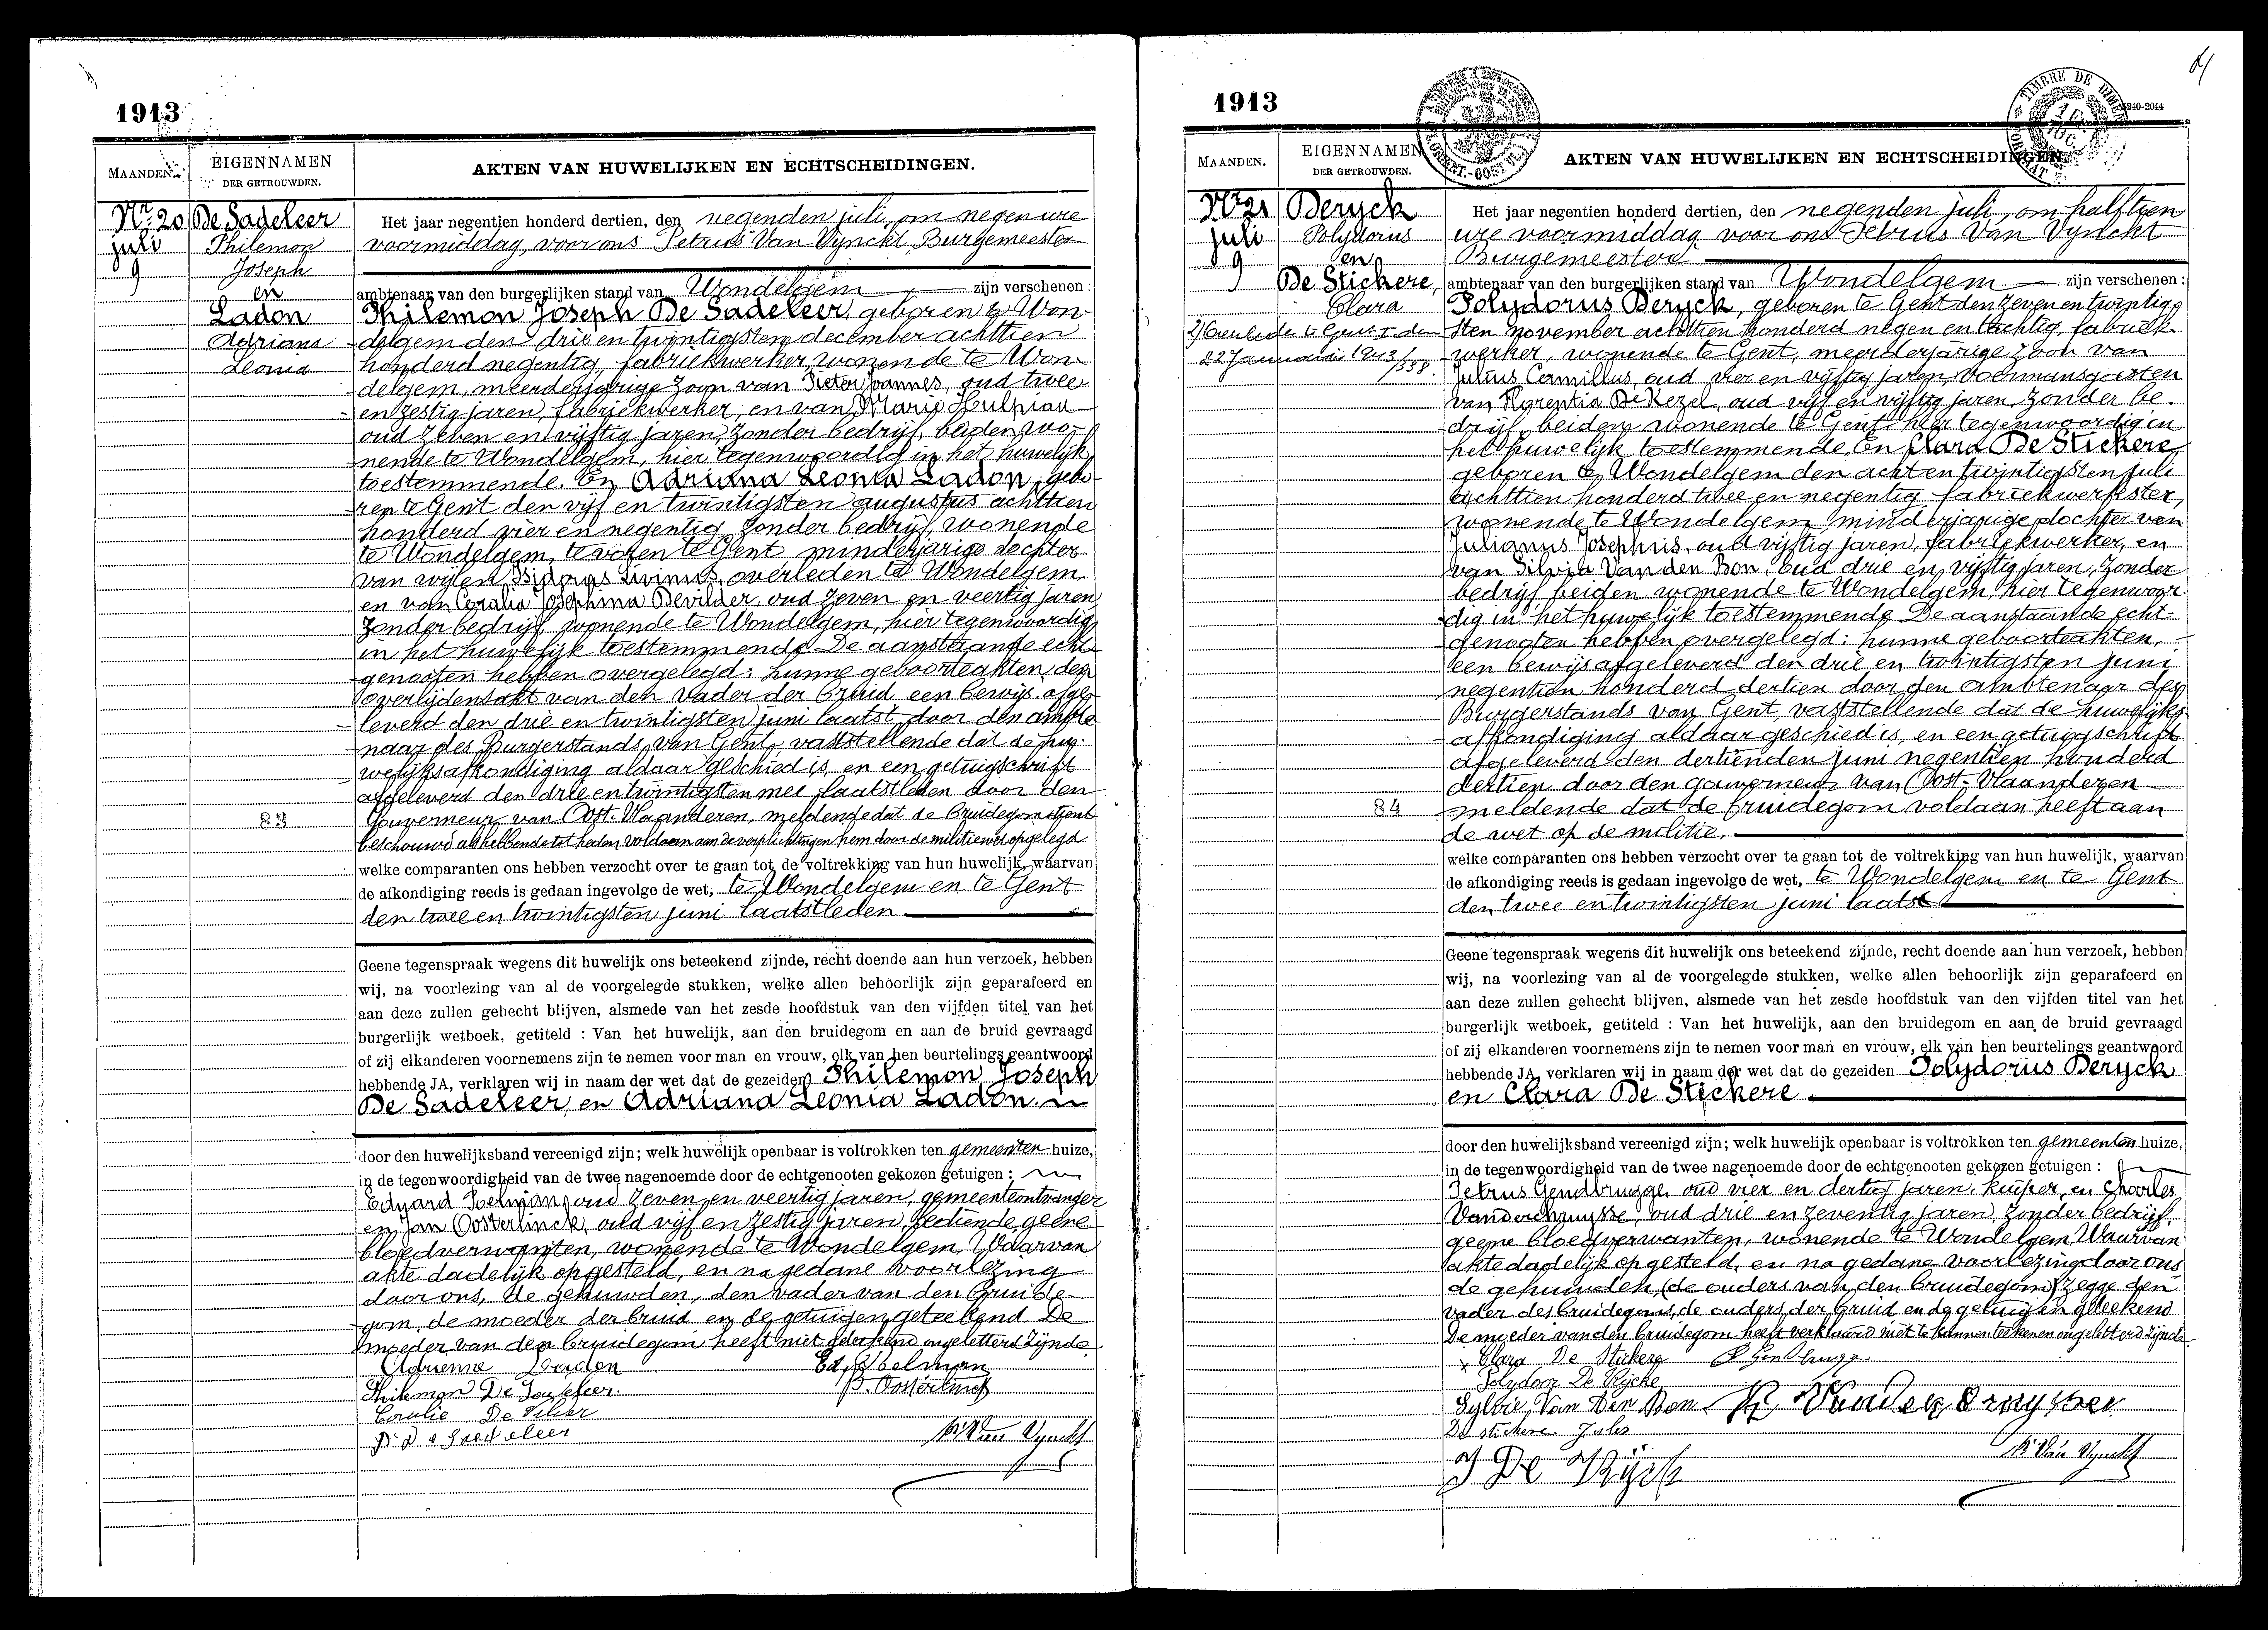 1913
MAANDEN.
EIGENNAMEN
DER GETROUWDEN.
AKTEN VAN HUWELIJKEN EN ECHTSCHEIDINGEN.
Nr. 20
juli
9
De Sadeleer
Philemon
Joseph
en
Ladon
Adriana
Leonia
83
Het jaar negentien honderd dertien, den negenden juli, om negen ure
voormiddag, voor ons Petrus Van Vynckt, Burgemeester
ambtenaar van den burgerlijken stand van Wondelgem zijn verschenen:
Philemon Joseph De Sadeleer, geboren te Won-
delgem den drie en twintigsten december achttien
honderd negentig, fabriekwerker, wonende te Won-
delgem, meerderjarige zoon van Pieter Joannes, oud twee
en zestig jaren, fabriekwerker, en van Marie Hulpiau
oud zeven en vijftig jaren, zonder bedrijf, beiden wo-
nende te Wondelgem, hier tegenwoordig in het huwelijk
toestemmende. En Adriana Leonia Ladon, gebo-
ren te Gent den vijf en twintigsten augustus achttien
honderd vier en negentig, zonder bedrijf, wonende
te Wondelgem, te voren te Gent, minderjarige dochter
van wijlen Isidorus Livinus, overleden te Wondelgem
en van Coralia Josephina Devilder, oud zeven en veertig jaren
zonder bedrijf, wonende te Wondelgem, hier tegenwoordig
in het huwelijk toestemmende. De aanstaande echt-
genooten hebben overgelegd: hunne geboorteakten, den
overlijdensakt van den vader der bruid, een bewijs afge-
leverd den drie en twintigsten juni laatst door den ambte-
naar des Burgerstands van Gent, vaststellende dat de hu-
welijksafkondiging aldaar geschied is, en een getuigschrift
afgeleverd den drie en twintigsten mei laatstleden door den
Gouverneur van Oost-Vlaanderen, meldende dat de bruidegom dient
beschouwd als hebbende tot heden voldaan aan de verplichtingen hem door de militiewet opgelegd
welke comparanten ons hebben verzocht over te gaan tot de voltrekking van hun huwelijk, waarvan
de afkondiging reeds is gedaan ingevolge de wet, te Wondelgem en te Gent
den twee en twintigsten juni laatstleden
Geene tegenspraak wegens dit huwelijk ons beteekend zijnde, recht doende aan hun verzoek, hebben
wij, na voorlezing van al de voorgelegde stukken, welke allen behoorlijk zijn geparafeerd en
aan deze zullen gehecht blijven, alsmede van het zesde hoofdstuk van den vijfden titel van het
burgerlijk wetboek, getiteld : Van het huwelijk, aan den bruidegom en aan de bruid gevraagd
of zij elkanderen voornemens zijn te nemen voor man en vrouw, elk van hen beurtelings geantwoord
hebbende JA, verklaren wij in naam der wet dat de gezeiden Philemon Joseph
De Sadeleer en Adriana Leonia Ladon
door den huwelijksband vereenigd zijn; welk huwelijk openbaar is voltrokken ten gemeenten huize,
in de tegenwoordigheid van de twee nagenoemde door de echtgenooten gekozen getuigen :
Eduard oud zeven en veertig jaren, gemeenteontvanger
en Jan Oosterlinck, oud vijf en zestig jaren, bediende geene
bloedverwanten, wonende te Wondelgem. Waarvan
akte dadelijk opgesteld, en na gedane voorlezing
door ons, de gehuwden, den vader van den bruide-
gom, de moeder der bruid en de getuigen geteekend. De
moeder van den bruidegom heeft niet geteekend ongeletterd zijnde
Adrienne Ladon
Philemon De Sadeleer.
Coralie De Vilder
P. De Sadeleer
J. Oosterlinck
P. Van Vynckt
1913
TIMBRE DE DIMENSION
240-2044
MAANDEN.
EIGENNAMEN
DER GETROUWDEN.
AKTEN VAN HUWELIJKEN EN ECHTSCHEIDINGEN.
Nr. 21
juli
9
Deryck
Polydorus
en
De Stickere,
Clara
2) Overleden te Gent I den
22 Januari 1943/
338.
84
Het jaar negentien honderd dertien, den negenden juli, om half tien
ure voormiddag voor ons Petrus Van Vynckt
Burgemeester
ambtenaar van den burgerlijken stand van Wondelgem zijn verschenen:
Polydorus Deryck, geboren te Gent den zeven en twintig-
sten november achttien honderd negen en tachtig, fabriek-
werker, wonende te Gent, meerderjarige zoon van
Julius Camillus, oud vier en vijftig jaren, voermansgasten
van Florentia De Kezel, oud vijf en vijftig jaren, zonder be-
drijf, beiden wonende te Gent, hier tegenwoordig in
het huwelijk toestemmende. En Clara De Stickere
geboren te Wondelgem den acht en twintigsten juli
achttien honderd twee en negentig, fabriekwerkster,
wonende te Wondelgem, minderjarige dochter van
Julianus Josephus, oud vijftig jaren, fabriekwerker, en
van Silvia Van den Bon, oud drie en vijftig jaren, zonder
bedrijf, beiden wonende te Wondelgem, hier tegenwoor-
dig in het huwelijk toestemmende. De aanstaande echt-
genooten hebben overgelegd: hunne geboorteakten,
een bewijs afgeleverd den drie en twintigsten juni
negentien honderd dertien door den ambtenaar des
Burgerstands van Gent, vaststellende dat de huwelijks-
afkondiging aldaar geschied is, en een getuigschrift
afgeleverd den dertienden juni negentien honderd
dertien door den gouverneur van Oost-Vlaanderen
meldende dat de bruidegom voldaan heeft aan
de wet op de militie.
welke comparanten ons hebben verzocht over te gaan tot de voltrekking van hun huwelijk, waarvan
de afkondiging reeds is gedaan ingevolge de wet, te Wondelgem en te Gent
den twee en twintigsten juni laatst
Geene tegenspraak wegens dit huwelijk ons beteekend zijnde, recht doende aan hun verzoek, hebben
wij, na voorlezing van al de voorgelegde stukken, welke allen behoorlijk zijn geparafeerd en
aan deze zullen gehecht blijven, alsmede van het zesde hoofdstuk van den vijfden titel van het
burgerlijk wetboek, getiteld : Van het huwelijk, aan den bruidegom en aan de bruid gevraagd
of zij elkanderen voornemens zijn te nemen voor man en vrouw, elk van hen beurtelings geantwoord
hebbende JA, verklaren wij in naam der wet dat de gezeiden Polydorus Deryck
en Clara De Stickere
door den huwelijksband vereenigd zijn; welk huwelijk openbaar is voltrokken ten gemeenten huize,
in de tegenwoordigheid van de twee nagenoemde door de echtgenooten gekozen getuigen :
Petrus Gendbrugge, oud vier en dertig jaren, kuiper, en Charles
Vandercruysse, oud drie en zeventig jaren, zonder bedrijf,
geene bloedverwanten, wonende te Wondelgem. Waarvan
akte dadelijk opgesteld, en na gedane voorlezing door ons
de gehuwden, (de ouders van den bruidegom) zegge den
vader des bruidegoms, de ouders der bruid en de getuigen geteekend
De moeder van den bruidegom heeft verklaard niet te kunnen teekenen ongeletterd zijnde
Clara De Stickere
Polydoor De Rycke
Sylvie Van Den Bon
De stickere Jules
De Ryck
P. Van Vynckt